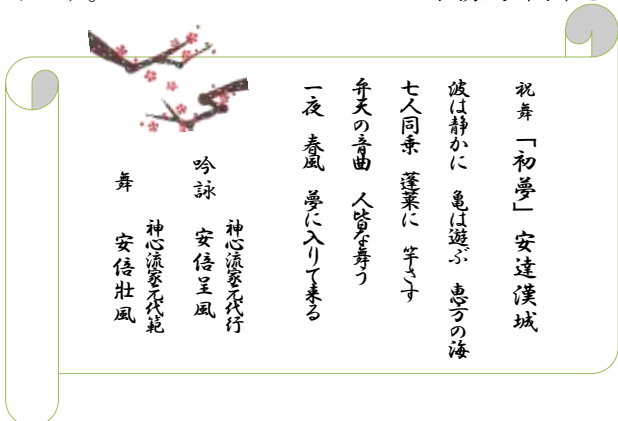 祝舞 「初夢」 安達漢城
波は静かに 亀は遊ぶ 恵方の海
七人同乗 蓬莱に 竿さす
弁天の音曲 人皆な舞う
一夜 春風 夢に入りて来る
神心流家元代行
吟詠 安倍呈風
神心流家元代範
舞 安倍壮風